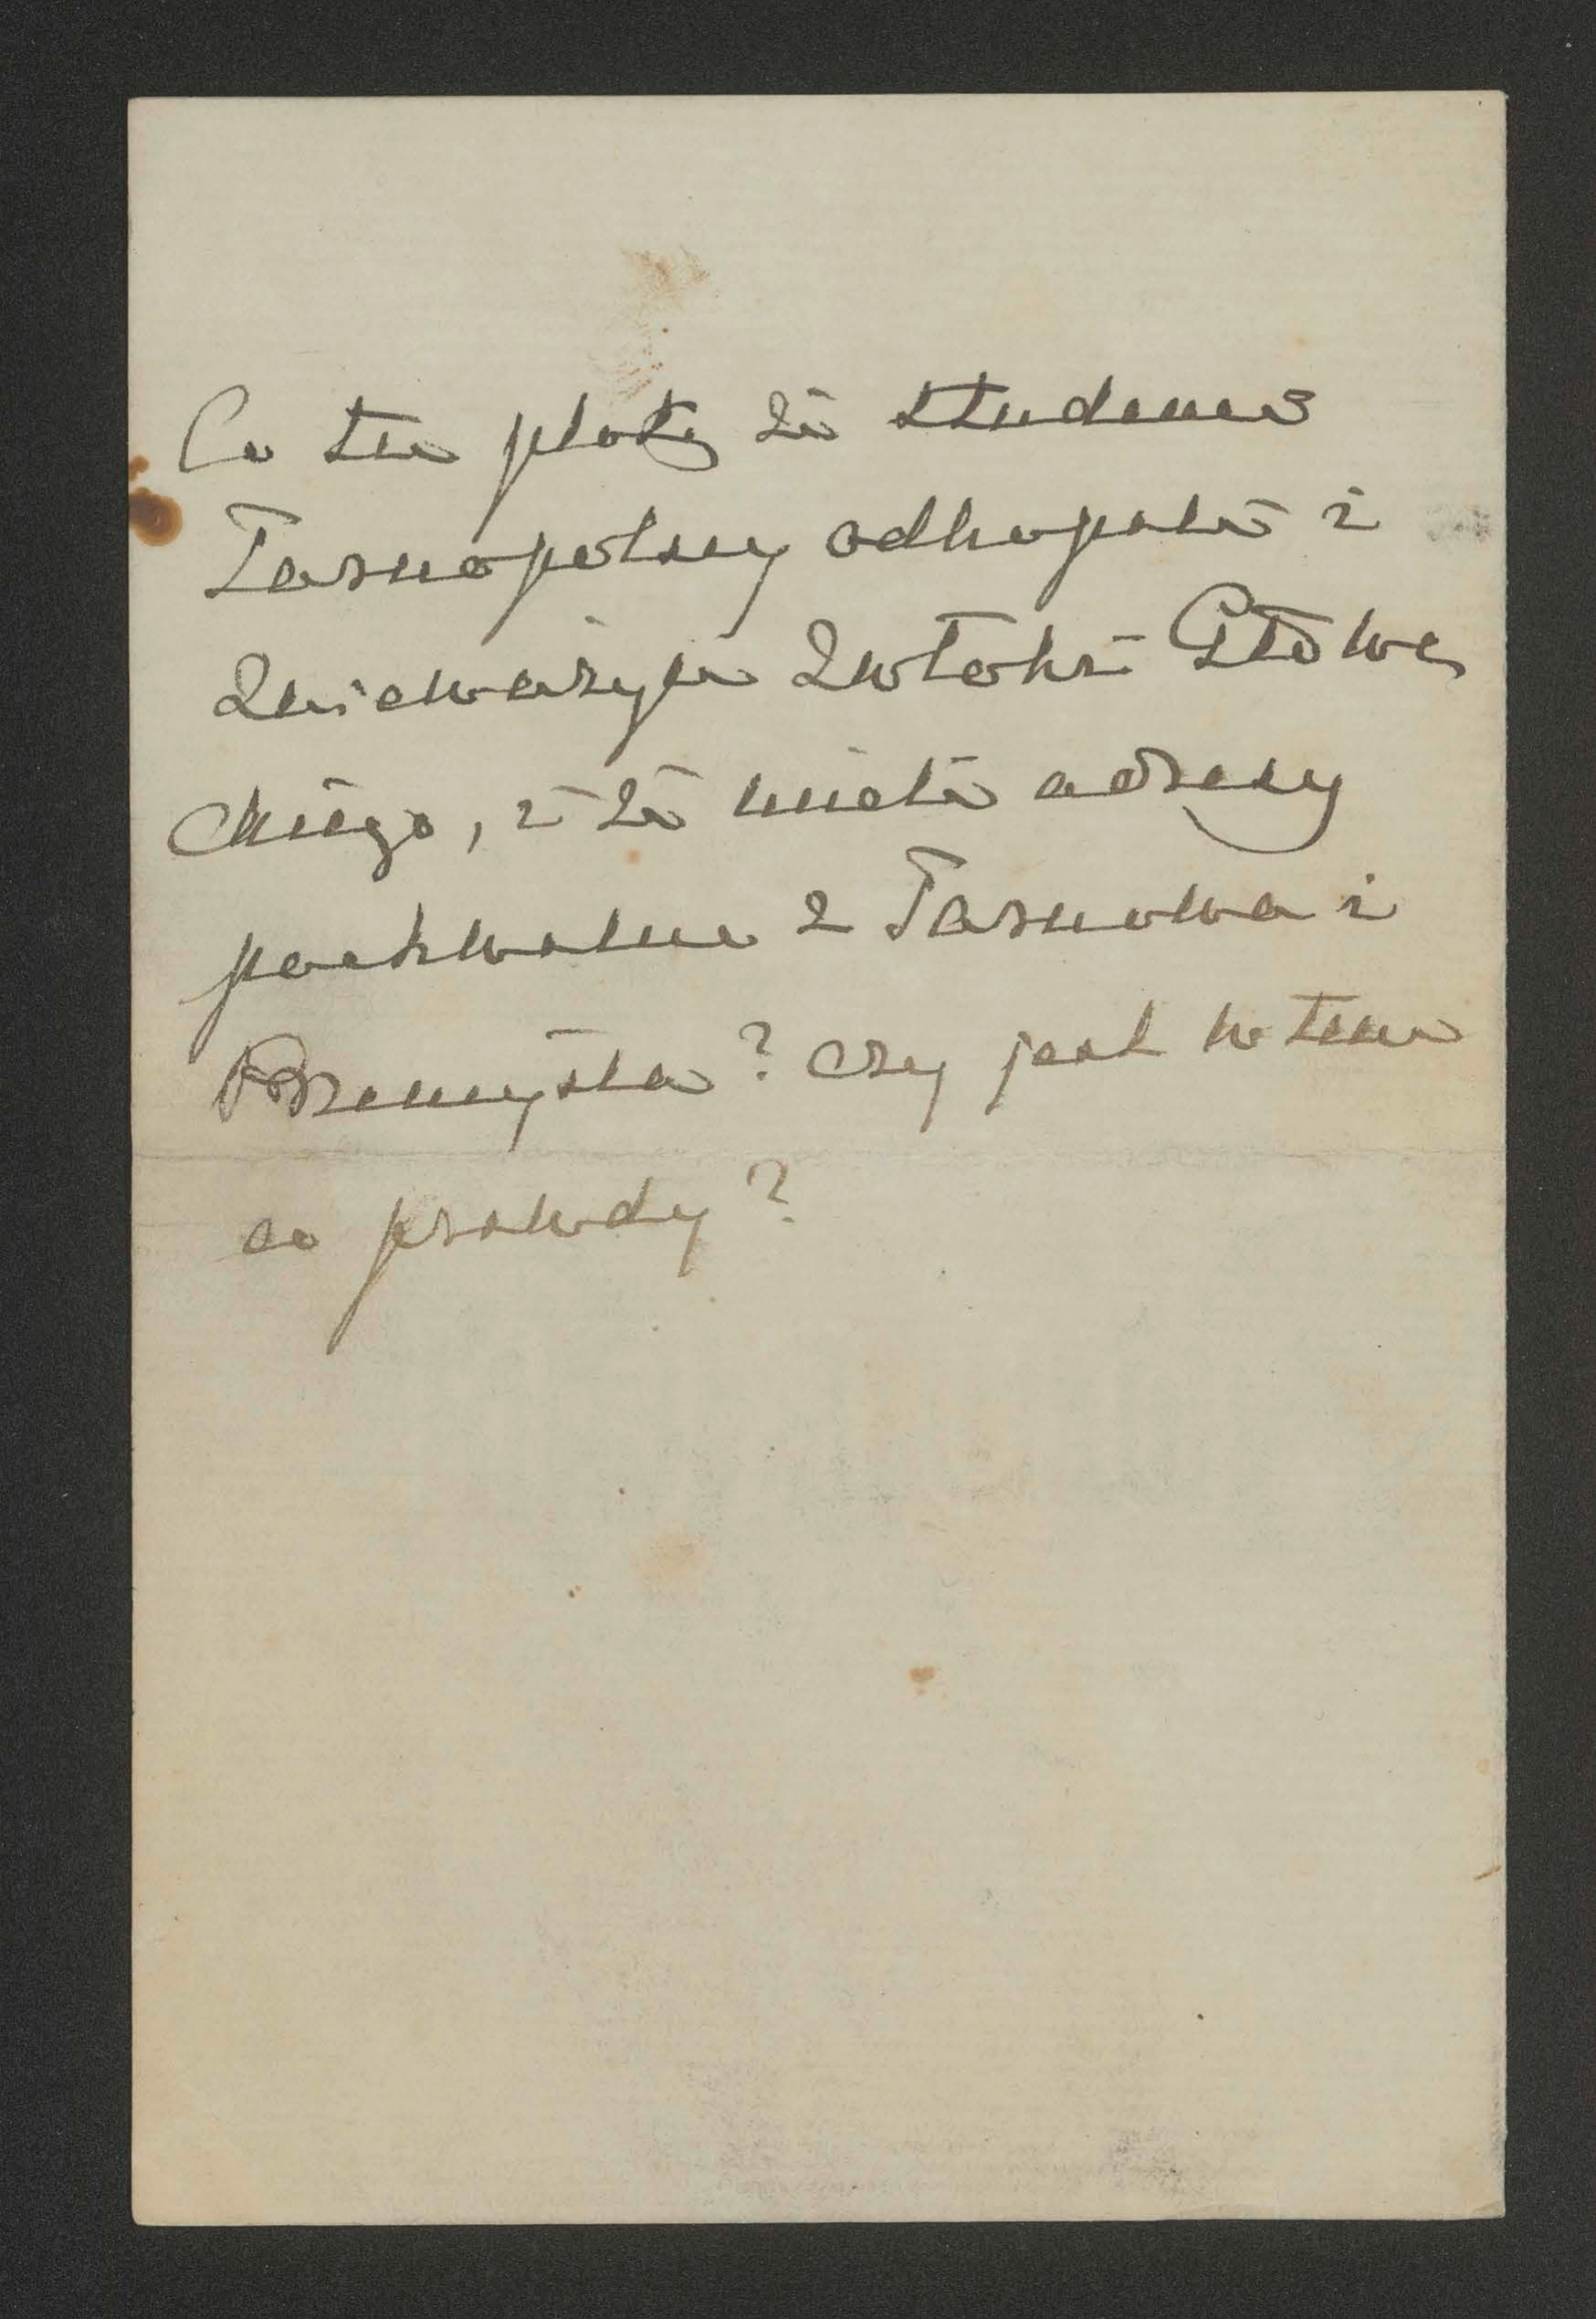 Co tu plotą że studenci
Tarnopolscy odkopali i
znieważyli zwłoki Głowac
kiego, i że mieli adresy
pochwalne z Tarnowa i
Przemyśla? czy jest w tem
co prawdy?